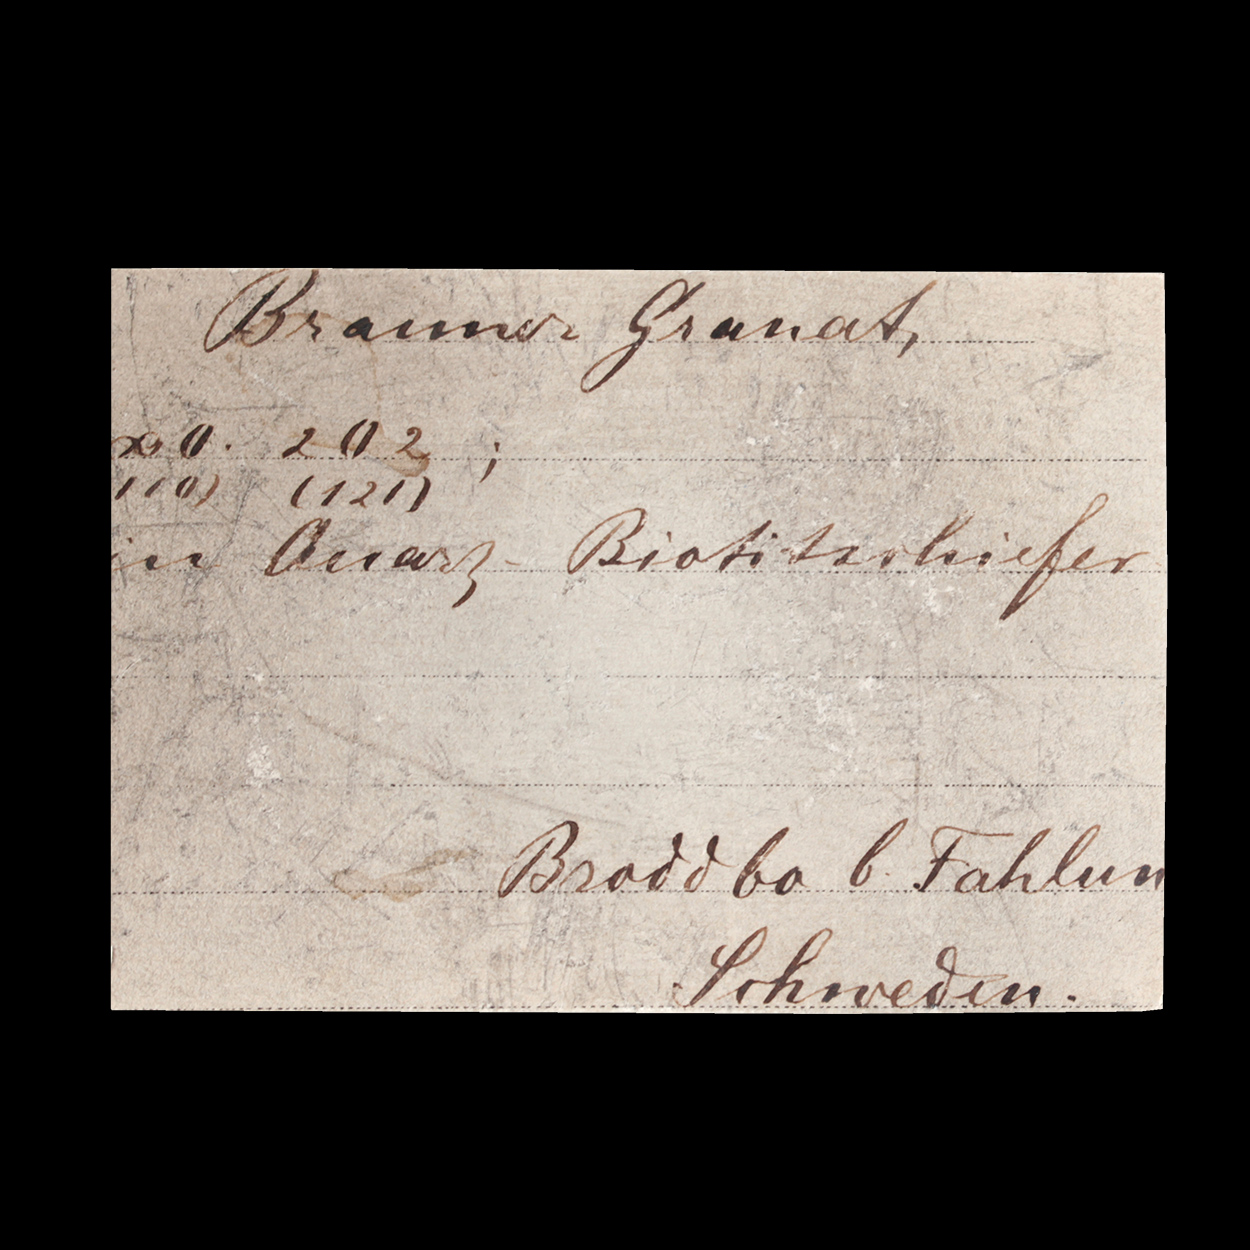 Brauner Granat,
∞0. 202 ;
110) (121)
in Quarz- Biotitschiefer
Broddbo b. Fahlun
Schweden.